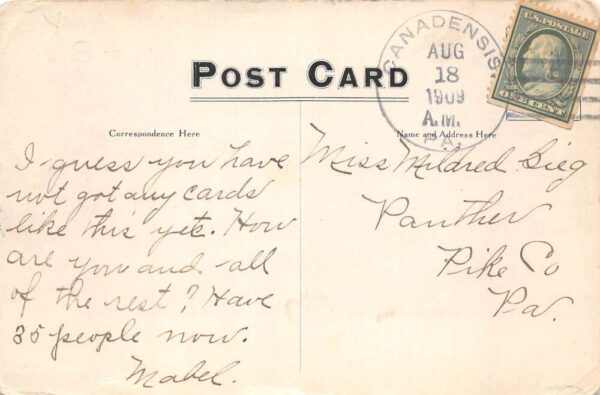 POST CARD
CANADENSIS
AUG
18
1909
A.M.
PA.
U.S. POSTAGE
ONE CENT
Correspondence Here
Name and Address Here
I guess you have
not got any cards
like this yet. How
are you and all
of the rest? Have
35 people now.
Mabel.
Miss Mildred Gieg
Panther
Pike Co
Pa.